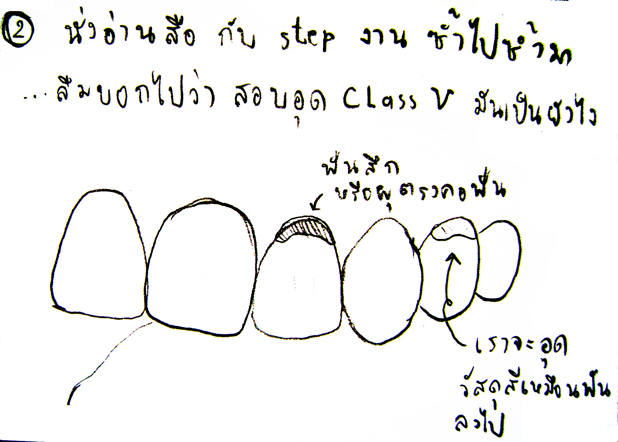 ② นั่งอ่านสือ กับ step งาน ซ้ำไปซ้ำมา
...ลืมบอกไปว่า สอบอุด Class V มันเป็นยังไง
ฟันสึก
หรือผุตรงคอฟัน
เราจะอุด
วัสดุสีเหมือนฟัน
ลงไป